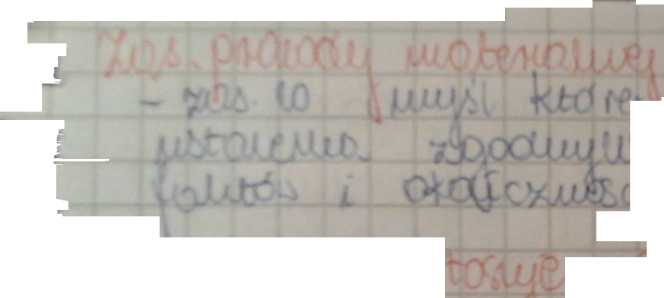 Zas. prawdy materialnej
- zas. co myśl które
ustalenia zgodnym
faktów i okoliczność